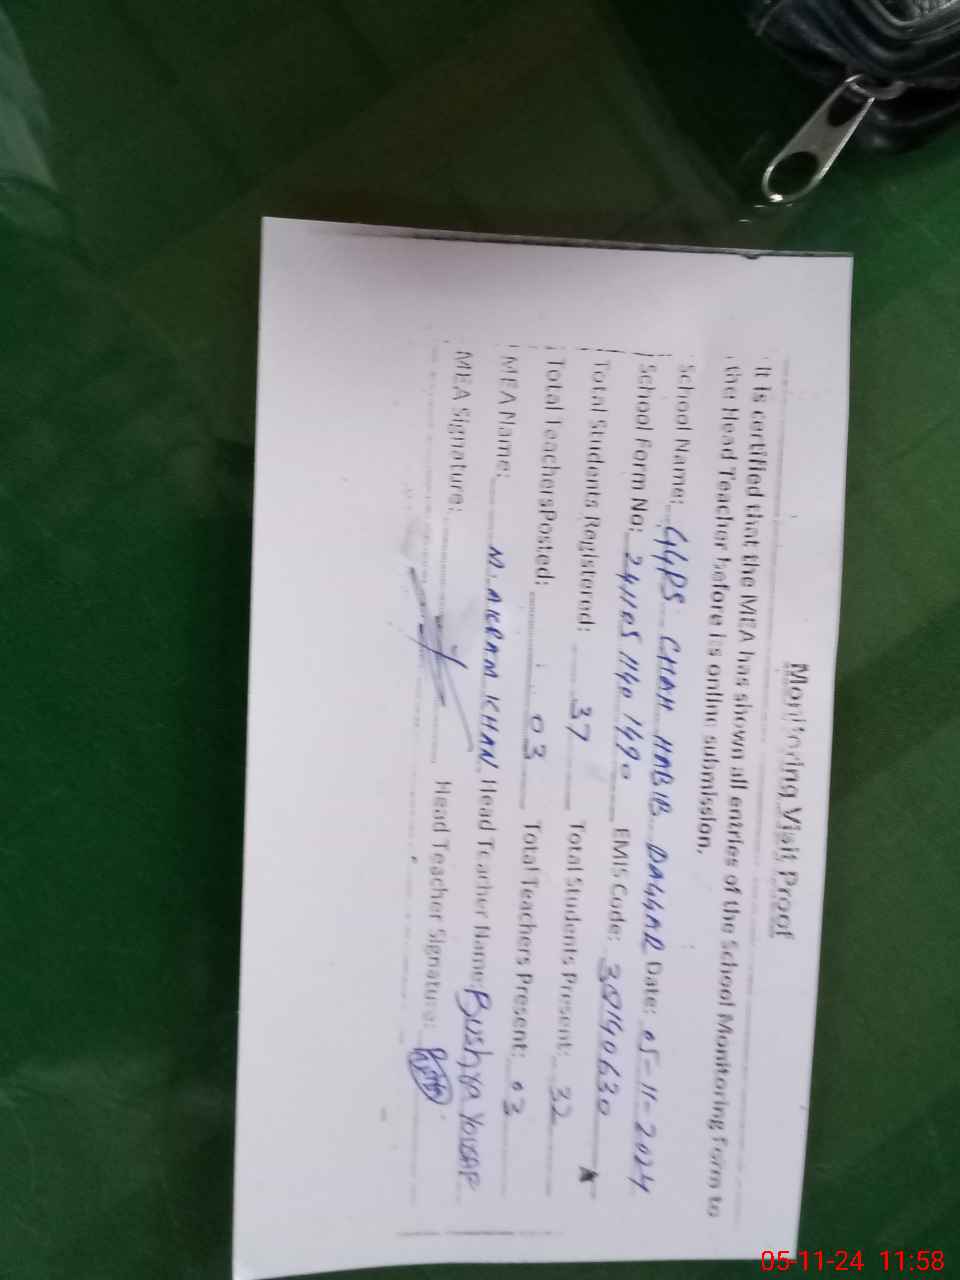 Monitoring Visit Proof
It is certified that the MEA has shown all entries of the School Monitoring Form to
the Head Teacher before its online submission.
School Name: GGPS CHAH HABIB DAGGAR Date: 05-11-2024
School Form No: 241105 1140 1490 EMIS Code:
Total Students Registered: 37 Total Students Present: 32
Total TeachersPosted: 03 Total Teachers Present: 03
MEA Name: M. AKRAM KHAN Head Teacher Name: Bushra Yousaf
MEA Signature: Head Teacher Signature:
05-11-24 11:58